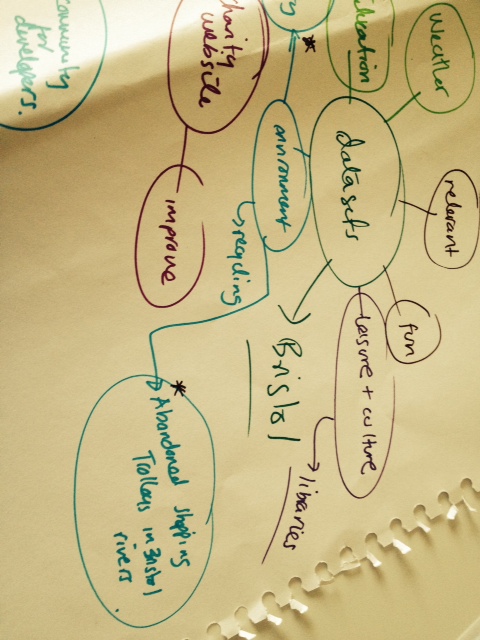 weather
relevant
fun
education
datasets
Leisure + culture
libraries
Bristol
environment
recycling
charity
website
improve
* Abandoned shopping
Trolleys in Bristol
rivers.
community
for
developers.